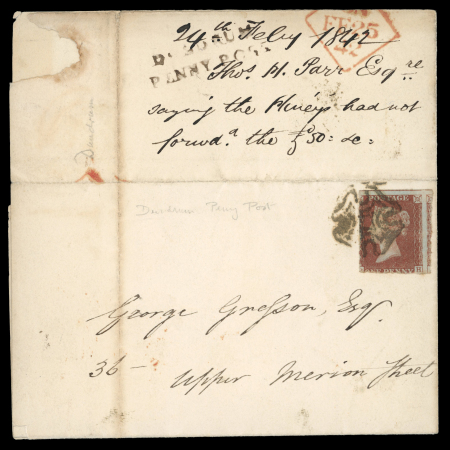 24th Feby 1842
PENNY POST
Thos. H. Parr Esqre
saying the Henrys had not
forwd. the £50 = &c =
FE 25
Dundrum
Dundrum Penny Post
POSTAGE
ONE PENNY
George Gresson, Esqr.
36 - Upper Merion Street